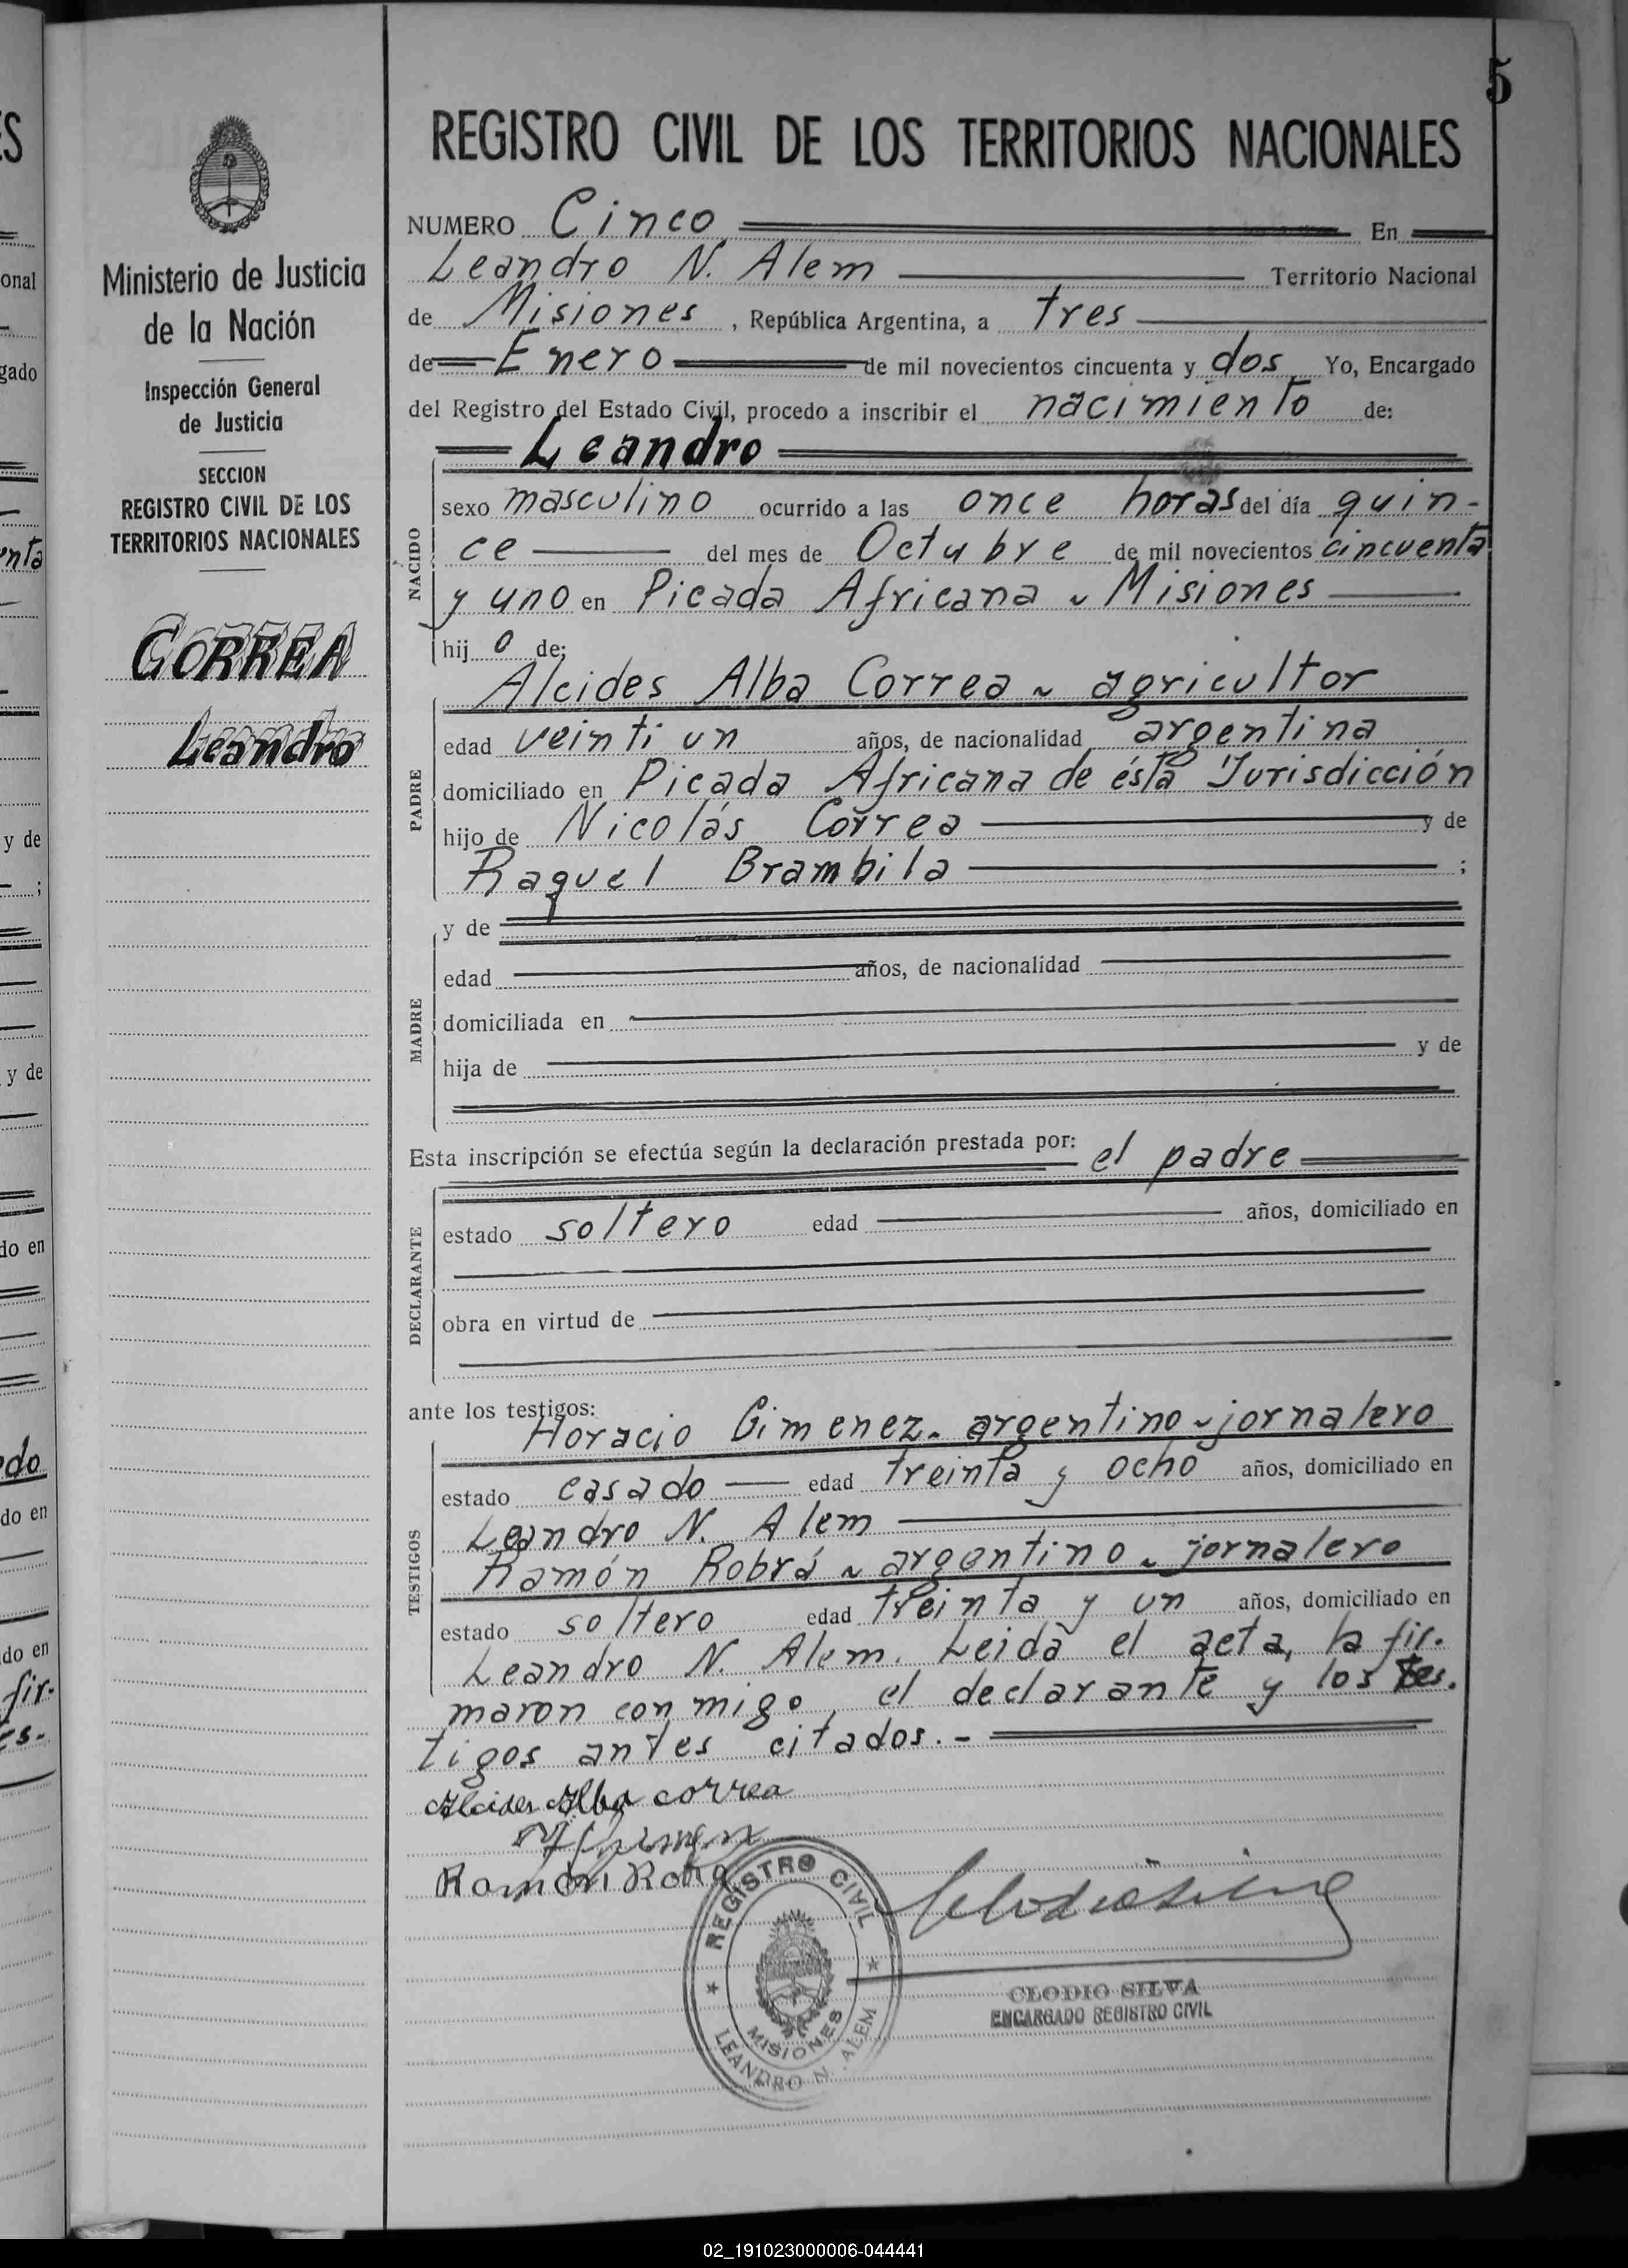 5
REGISTRO CIVIL DE LOS TERRITORIOS NACIONALES
Ministerio de Justicia
de la Nación
Inspección General
de Justicia
SECCION
REGISTRO CIVIL DE LOS
TERRITORIOS NACIONALES
CORREA
Leandro
NUMERO Cinco En
Leandro N. Alem Territorio Nacional
de Misiones, República Argentina, a tres
de Enero de mil novecientos cincuenta y dos Yo, Encargado
del Registro del Estado Civil, procedo a inscribir el nacimiento de:
Leandro
NACIDO
sexo masculino ocurrido a las once horas del día quin-
ce del mes de Octubre de mil novecientos cincuenta
y uno en Picada Africana ~ Misiones
hij o de;
Alcides Alba Correa ~ agricultor
PADRE
edad veinti un años, de nacionalidad argentina
domiciliado en Picada Africana de ésta Jurisdicción
hijo de Nicolás Correa y de
Raquel Brambila ;
y de
MADRE
edad años, de nacionalidad
domiciliada en
hija de y de
Esta inscripción se efectúa según la declaración prestada por: el padre
DECLARANTE
estado soltero edad años, domiciliado en
obra en virtud de
ante los testigos:
Horacio Gimenez. argentino ~ jornalero
TESTIGOS
estado casado edad treinta y ocho años, domiciliado en
Leandro N. Alem
Ramón Robrá ~ argentino ~ jornalero
estado soltero edad treinta y un años, domiciliado en
Leandro N. Alem. Leida el acta, la fir-
maron conmigo, el declarante y los tes-
tigos antes citados.-
Alcides Alba correa
Ramón Robra
REGISTRO CIVIL
MISIONES
LEANDRO N. ALEM
CLODIO SILVA
ENCARGADO REGISTRO CIVIL
02_191023000006-044441